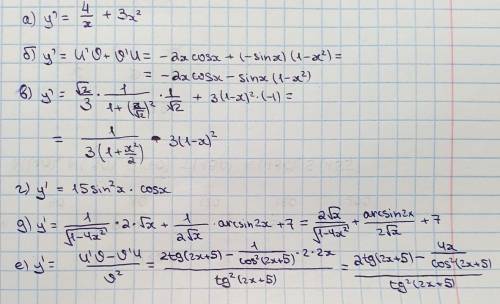 а) y' = 4/x + 3x²
б) y' = u'ϑ + ϑ'u = -2x cosx + (-sinx)(1-x²) =
= -2x cosx - sinx(1-x²)
в) y' = √2/3 · 1/(1+(x/√2)²) · 1/√2 + 3(1-x)² · (-1) =
= 1/(3(1+x²/2)) - 3(1-x)²
г) y' = 15 sin²x · cosx
д) y' = 1/√(1-4x²) · 2 · √x + 1/(2√x) · arcsin2x + 7 = 2√x/√(1-4x²) + arcsin2x/(2√x) + 7
е) y' = (u'ϑ - ϑ'u)/ϑ² = (2tg(2x+5) - 1/cos²(2x+5) · 2 · 2x)/tg²(2x+5) = (2tg(2x+5) - 4x/cos²(2x+5))/tg²(2x+5)